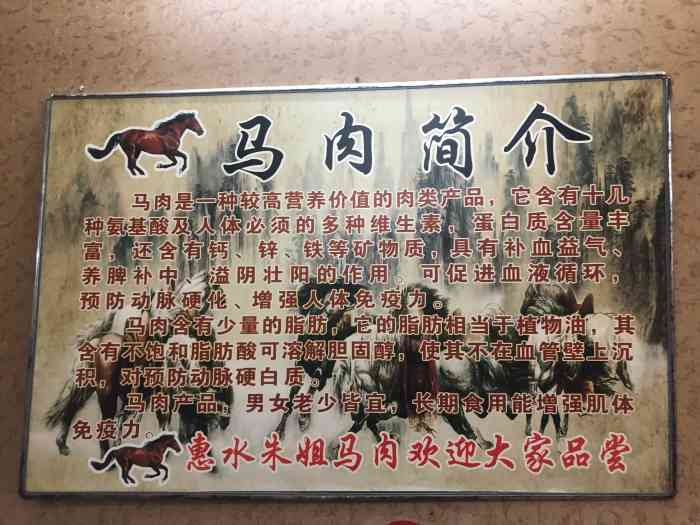 马肉简介
马肉是一种较高营养价值的肉类产品，它含有十几
种氨基酸及人体必须的多种维生素，蛋白质含量丰
富，还含有钙、锌、铁等矿物质，具有补血益气、
养脾补中、溢阴壮阳的作用。可促进血液循环，
预防动脉硬化、增强人体免疫力。
马肉含有少量的脂肪，它的脂肪相当于植物油，其
含有不饱和脂肪酸可溶解胆固醇，使其不在血管壁上沉
积，对预防动脉硬白质。
马肉产品，男女老少皆宜，长期食用能增强肌体
免疫力。
惠水朱姐马肉欢迎大家品尝